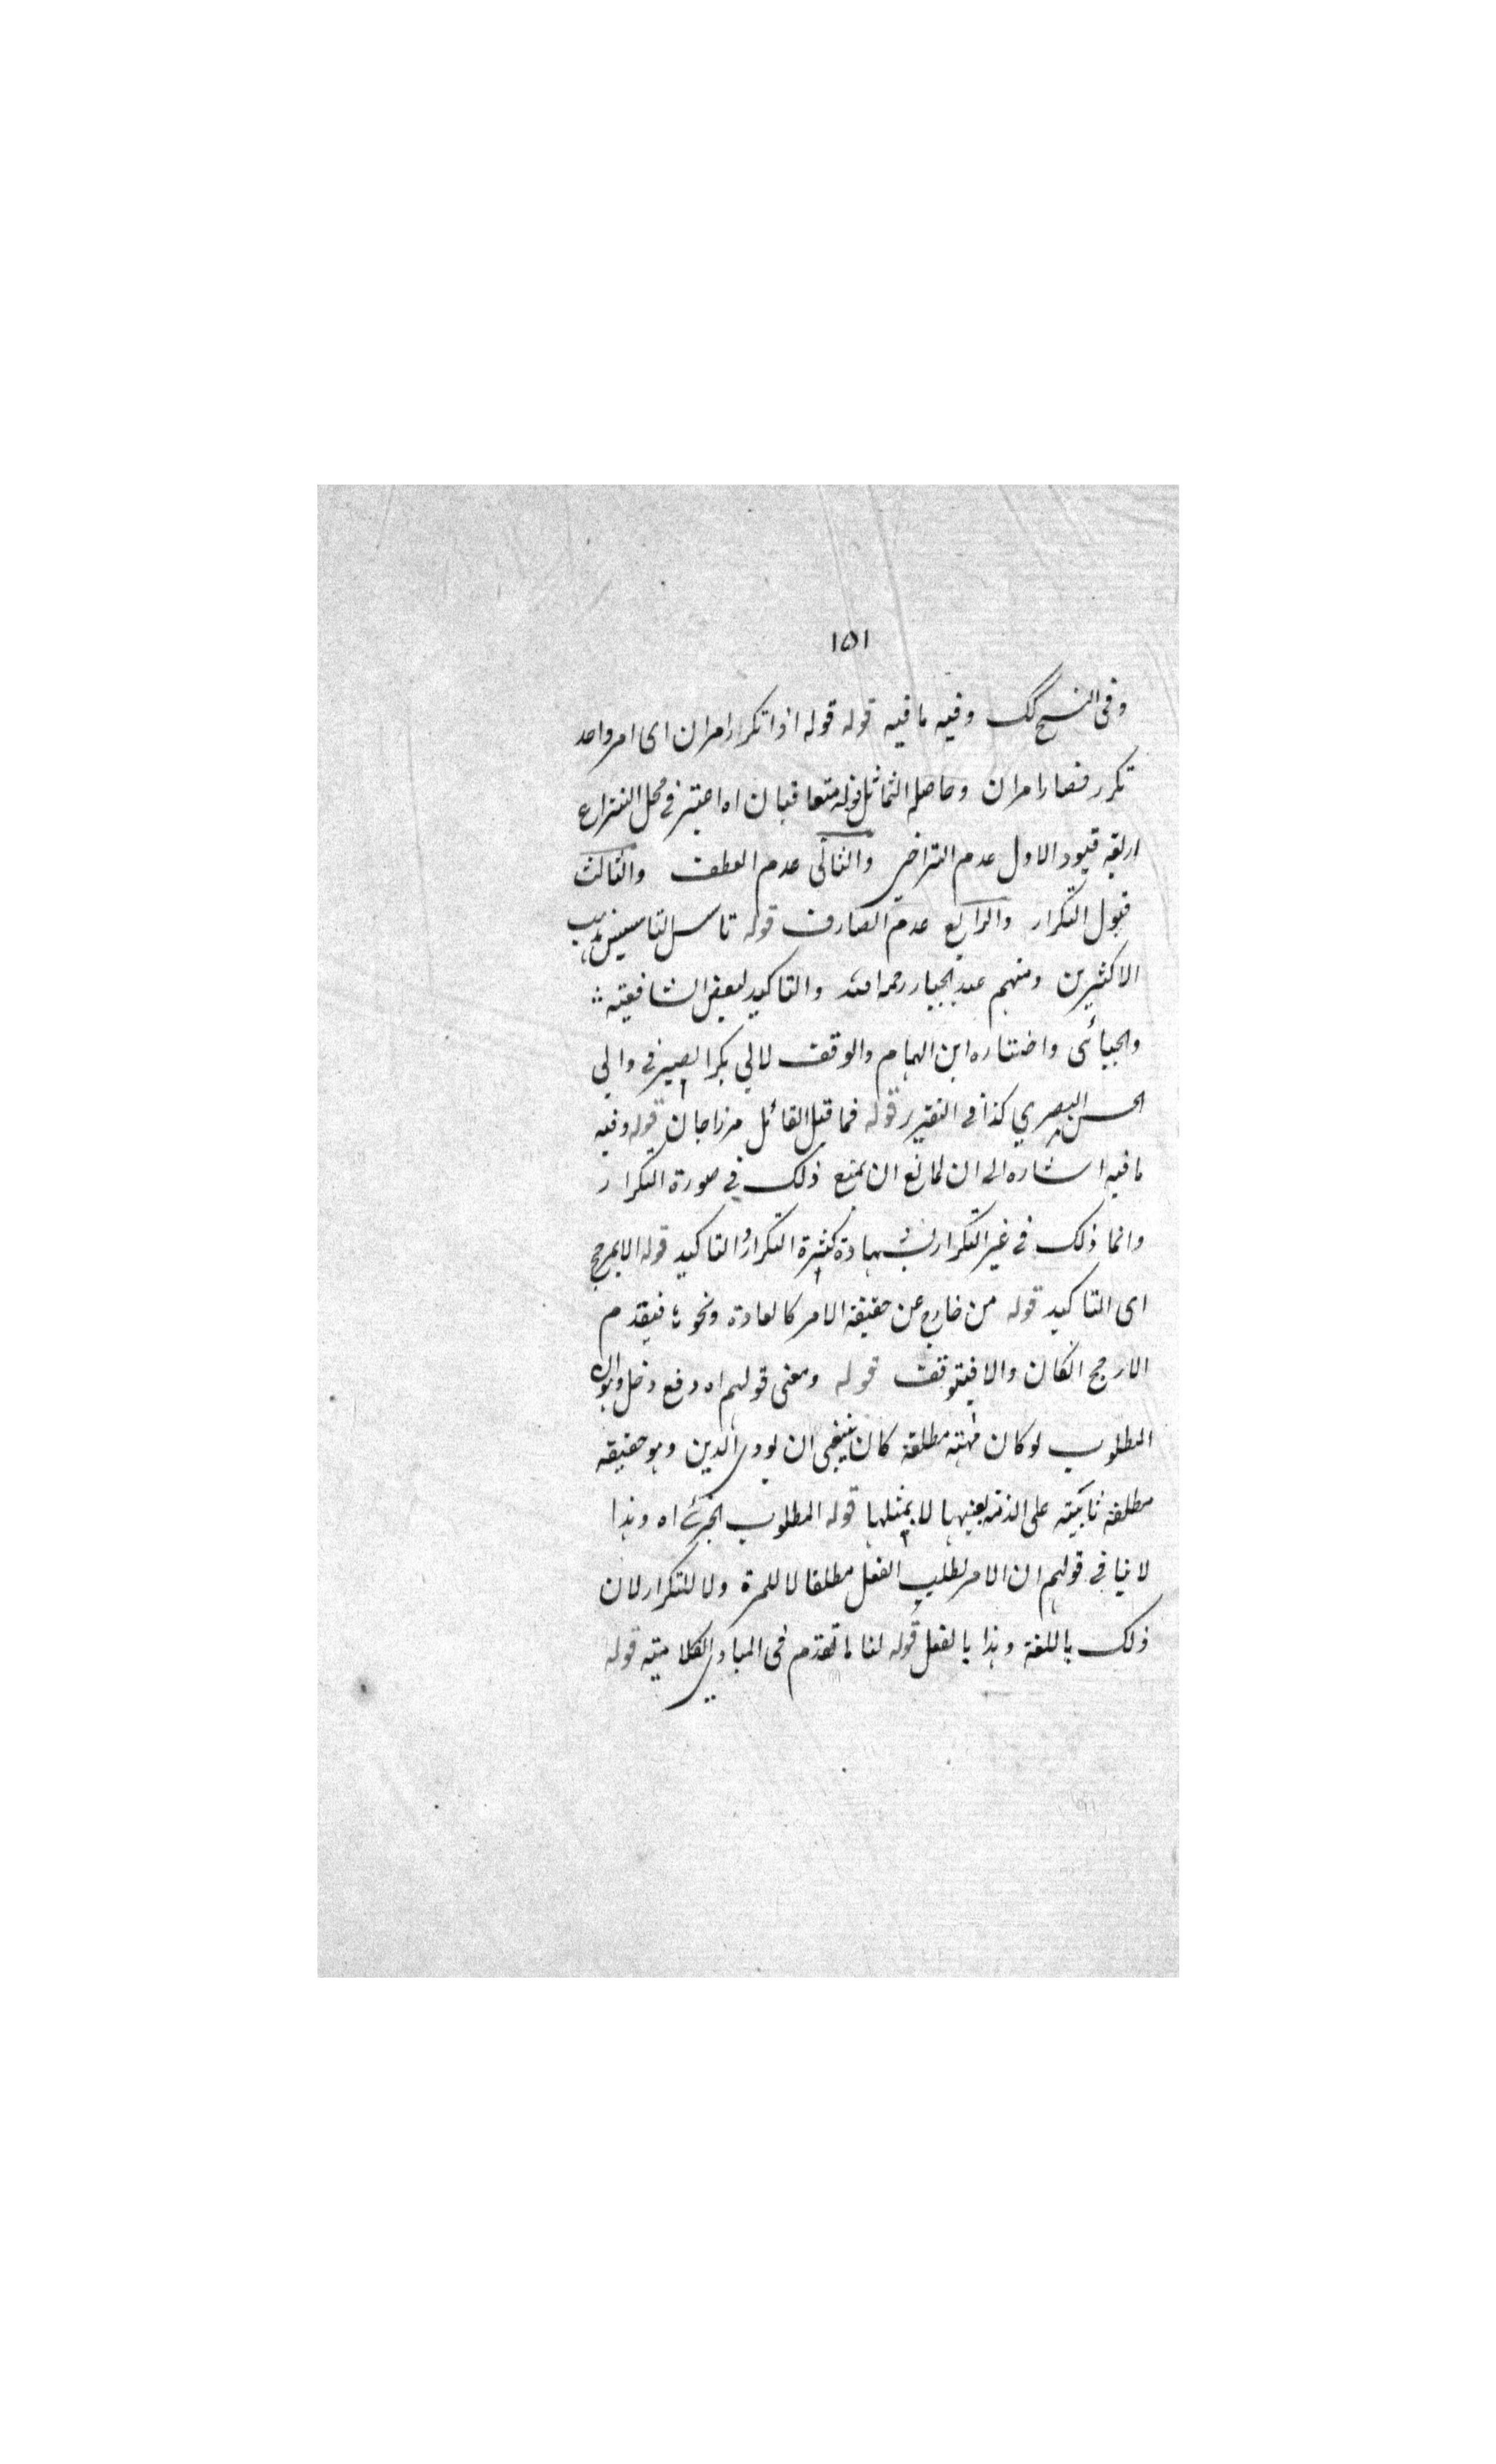 ١٥١
وفى النسخ لك وفيه ما فيه قوله قوله اذا تكرر امران اى امر واحد
تكرر فصار امران وحاصله التماثل قوله متعاقبان اه اعتبر فى محل النزاع
اربعة قيود الاول عدم التراخى والثانى عدم العطف والثالث
قبول التكرار والرابع عدم الصارف قوله تاسيس التاسيس مذهب
الاكثرين ومنهم عبد الجبار رحمه الله والتاكيد لبعض الشافعية
والجبائى واختاره ابن الهمام والوقف لابي بكر الصيرفى وابي
الحسن البصري كذا فى التقرير قوله فما قيل القائل مرزاجان قوله وفيه
ما فيه اشاره الى ان لمانع ان يمنع ذلك فى صورة التكرار
وانما ذلك فى غير التكرار بشهادة كثرة التكرار والتاكيد قوله الا بمرجح
اى التاكيد قوله من خارج عن حقيقة الامر كالعادة ونحوه فيقدم
الارجح ان كان والا فيتوقف قوله ومعنى قولهم اه دفع دخل وهو ان
المطلوب لو كان مهية مطلقة كان ينبغى ان يودى الدين وهو حقيقه
مطلقة ثابتة على الذمة بعينها لا بمثلها قوله المطلوب الجزئى اه وهذا
لا ينافى قولهم ان الامر لطلب الفعل مطلقا لا للمرة ولا للتكرار لان
ذلك باللغة وهذا بالفعل قوله لنا ما تقدم فى المبادى الكلامية قوله